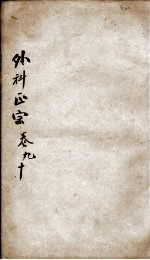 外科正宗卷九十